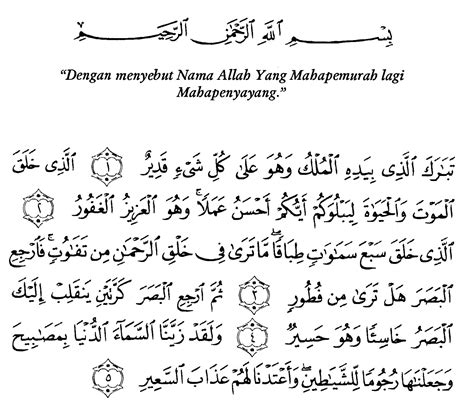 بِسْمِ اللَّهِ الرَّحْمَٰنِ الرَّحِيمِ
“Dengan menyebut Nama Allah Yang Mahapemurah lagi
Mahapenyayang.”
تَبَٰرَكَ الَّذِى بِيَدِهِ الْمُلْكُ وَهُوَ عَلَىٰ كُلِّ شَىْءٍ قَدِيرٌ ﴿١﴾ الَّذِى خَلَقَ
الْمَوْتَ وَالْحَيَوٰةَ لِيَبْلُوَكُمْ أَيُّكُمْ أَحْسَنُ عَمَلًاۚ وَهُوَ الْعَزِيزُ الْغَفُورُ ﴿٢﴾
الَّذِى خَلَقَ سَبْعَ سَمَٰوَٰتٍ طِبَاقًاۖ مَّا تَرَىٰ فِى خَلْقِ الرَّحْمَٰنِ مِن تَفَٰوُتٍۖ فَارْجِعِ
الْبَصَرَ هَلْ تَرَىٰ مِن فُطُورٍ ﴿٣﴾ ثُمَّ ارْجِعِ الْبَصَرَ كَرَّتَيْنِ يَنقَلِبْ إِلَيْكَ
الْبَصَرُ خَاسِئًا وَهُوَ حَسِيرٌ ﴿٤﴾ وَلَقَدْ زَيَّنَّا السَّمَآءَ الدُّنْيَا بِمَصَٰبِيحَ
وَجَعَلْنَٰهَا رُجُومًا لِّلشَّيَٰطِينِۖ وَأَعْتَدْنَا لَهُمْ عَذَابَ السَّعِيرِ ﴿٥﴾